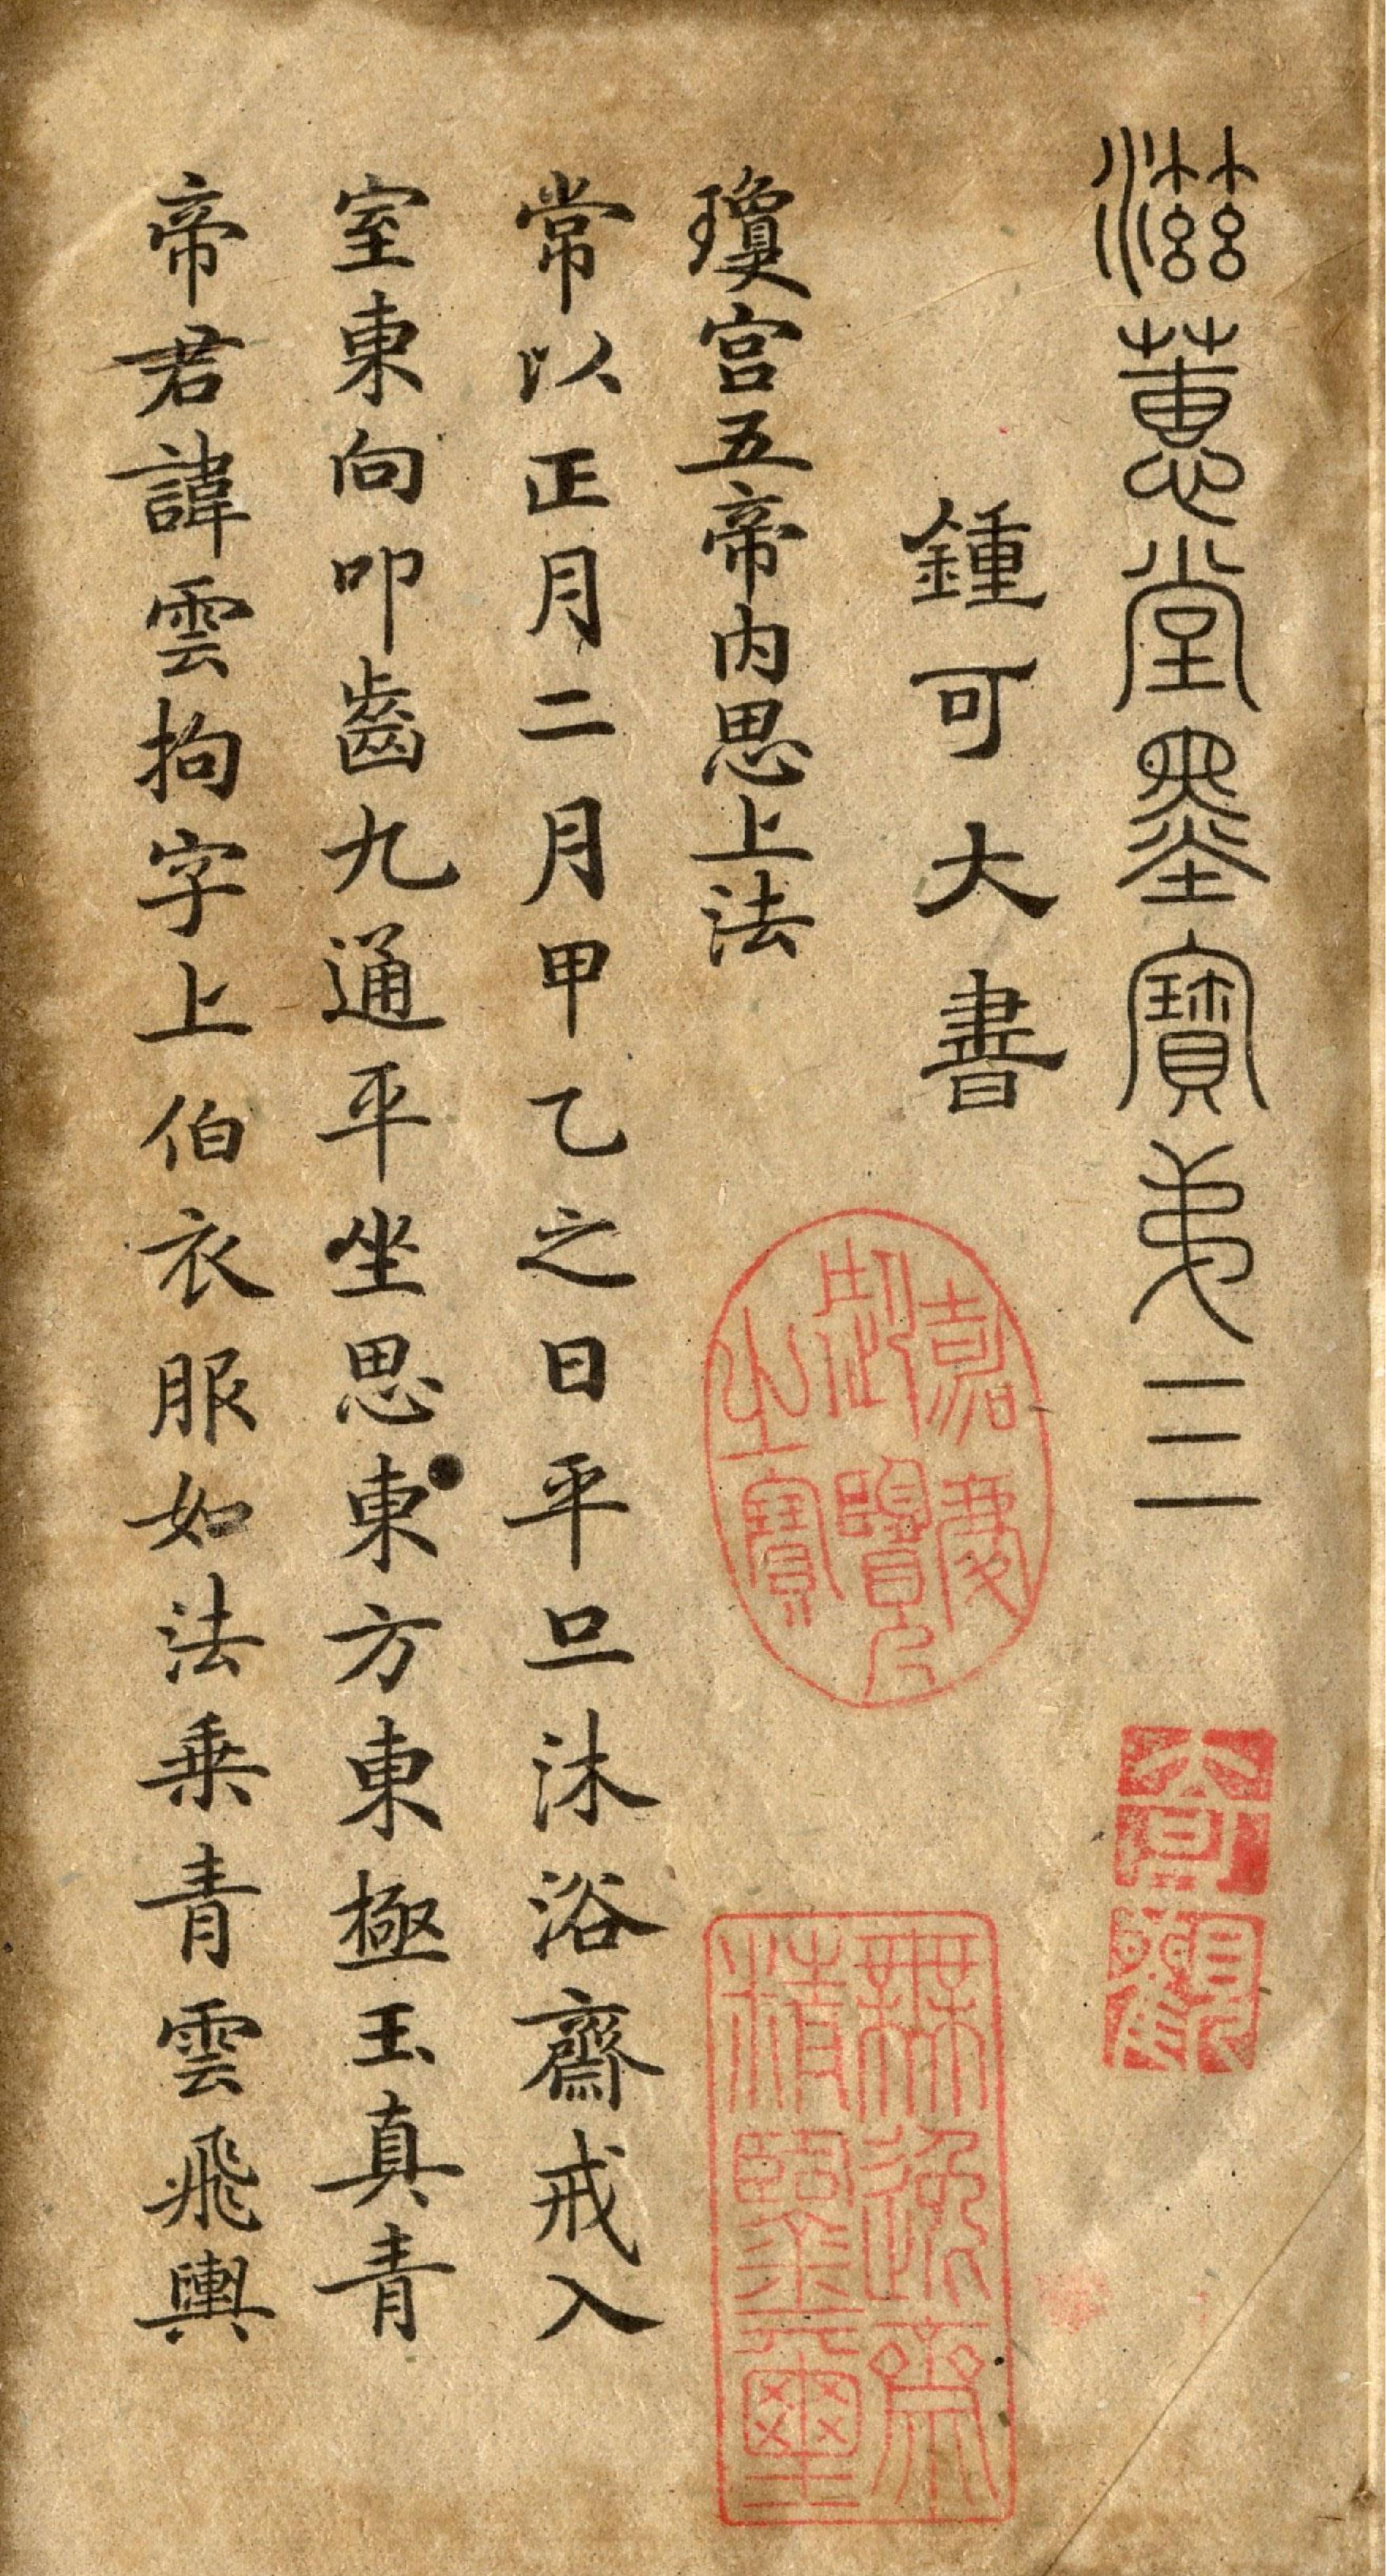 滋蕙堂墨寶弟三
鍾可大書
嘉慶御覽之寶
無逸齋精鑒璽
瓊宮五帝內思上法
常以正月二月甲乙之日平旦沐浴齋戒入
室東向叩齒九通平坐思東方東極玉真青
帝君諱雲拘字上伯衣服如法乘青雲飛輿